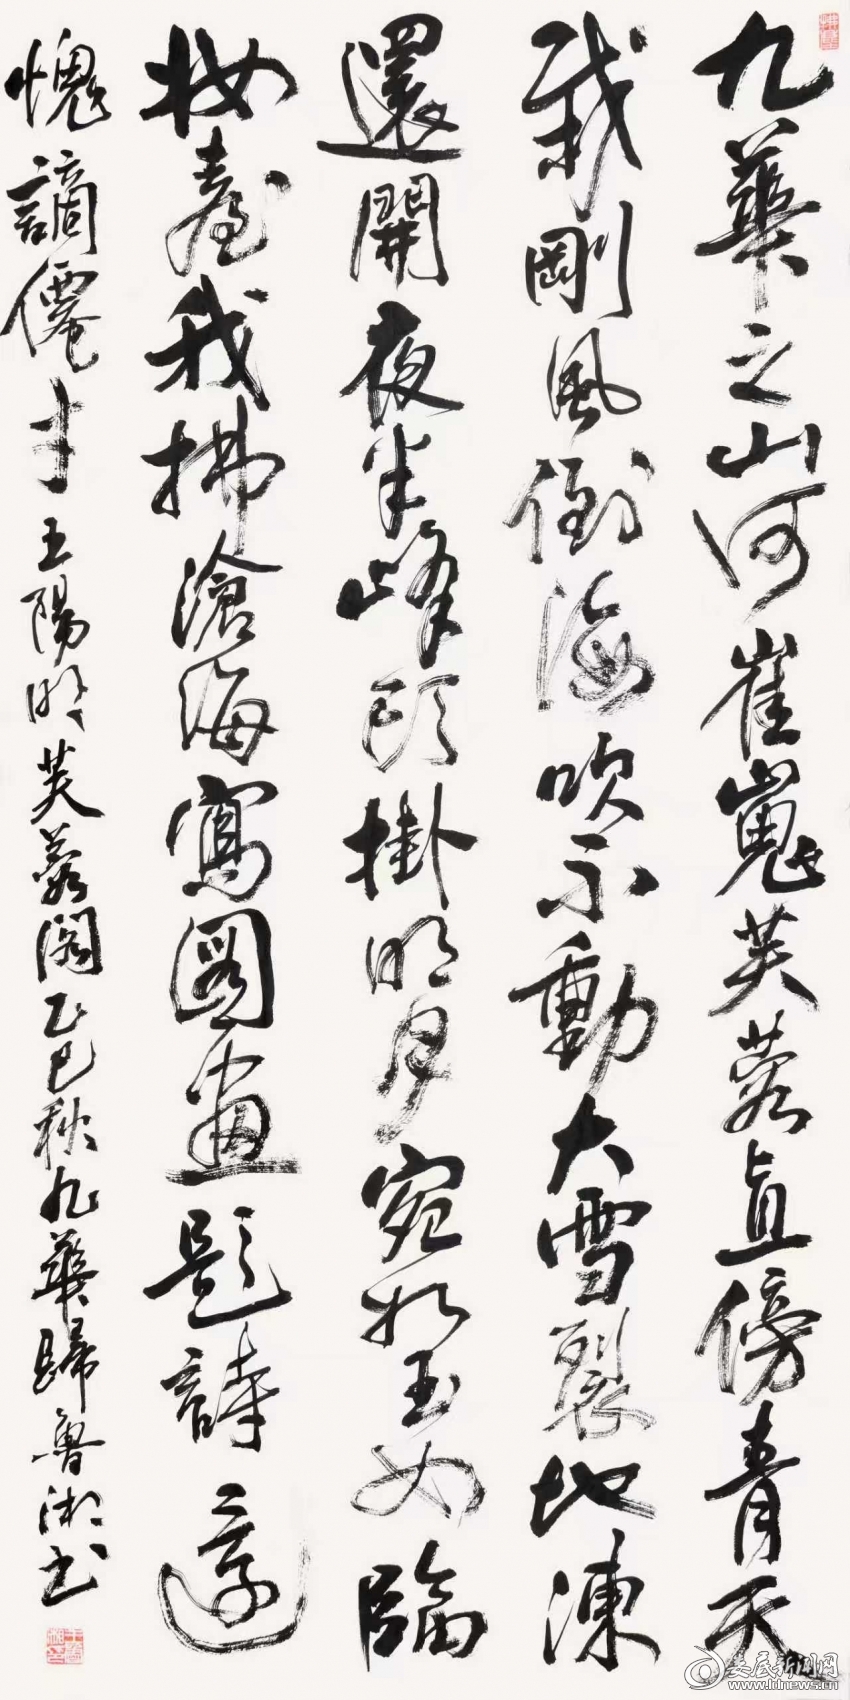 九華之山何崔嵬芙蓉直傍青天
栽剛風倒海吹不動大雪裂地凍
還開夜半峰頭掛明月宛如玉女臨
妝臺我拂滄海寫圖畫題詩還
愧謫僊才王陽明芙蓉閣乙巳秋九華歸魯湘書
娄底新闻网
www.ldnews.cn